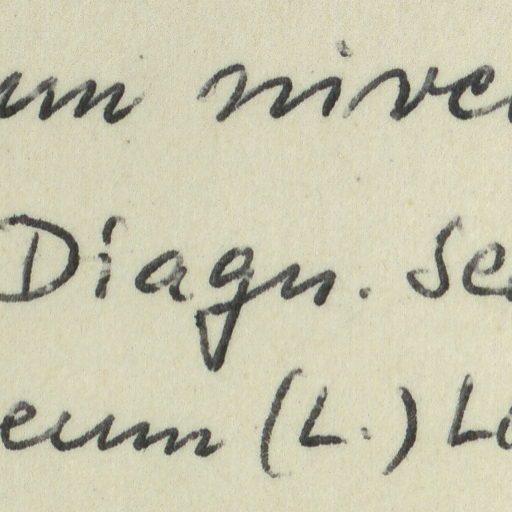 um nive
Diagn. Se
eum (L.) Lo